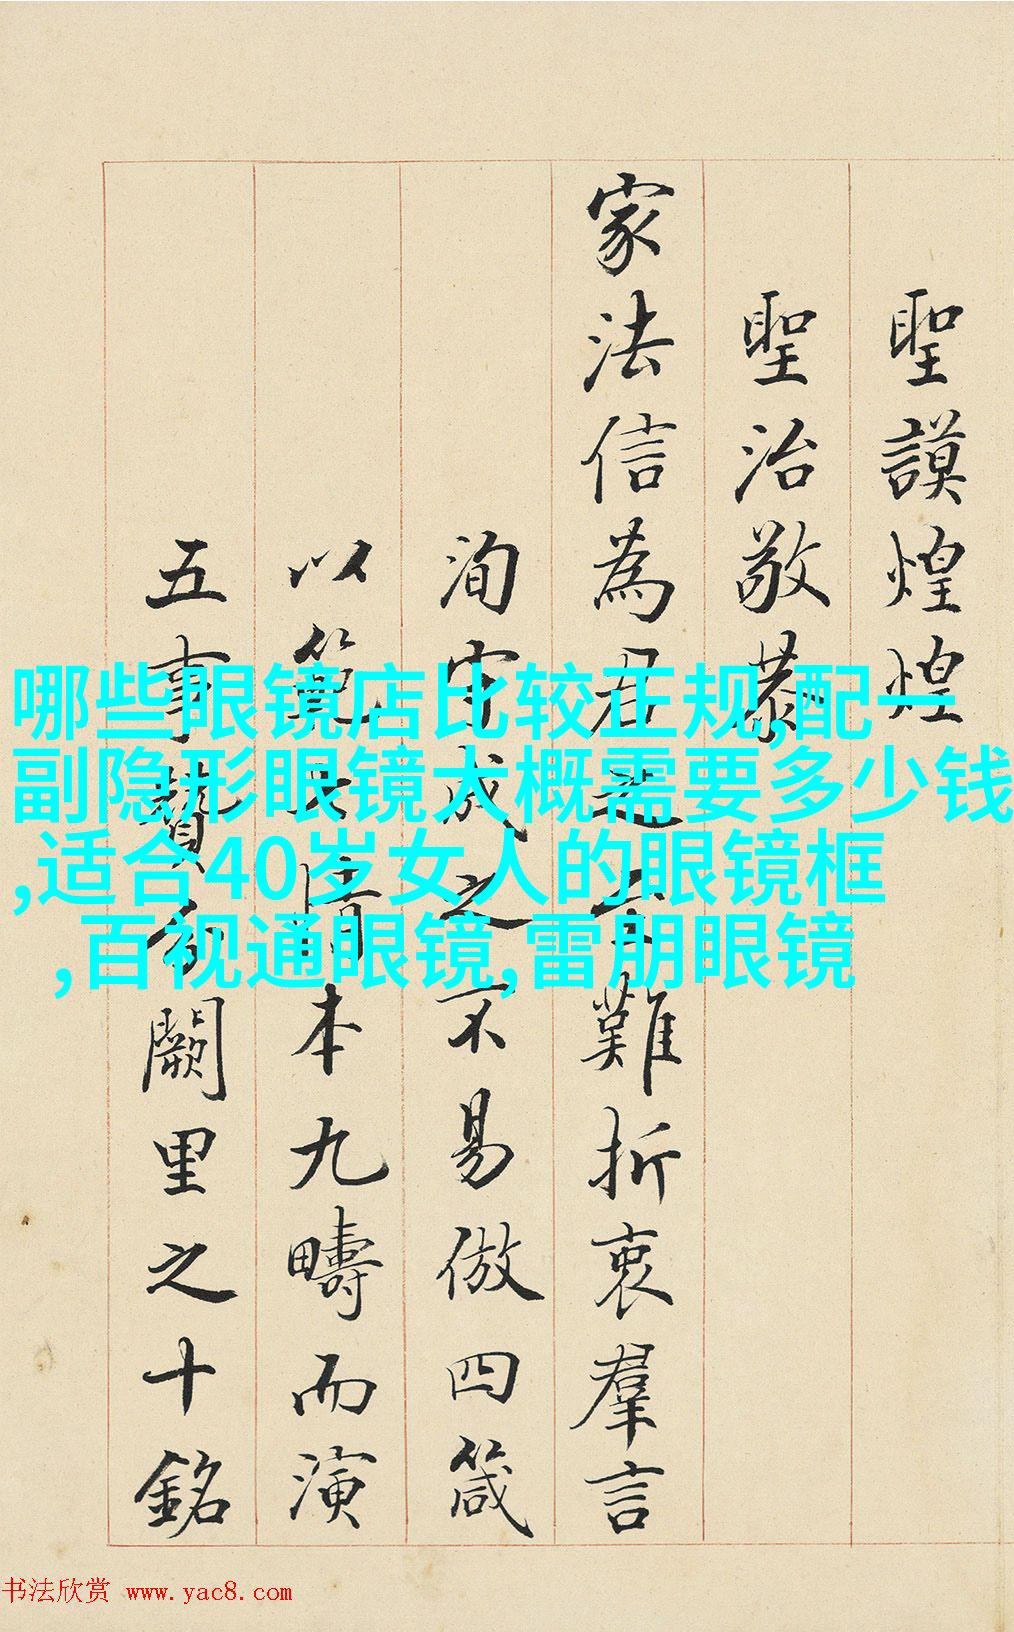 聖謨煌煌
聖治敬恭
家法信為君難折衷羣言
洵守成之不易倣四箴
以本九疇而演
五事贊闕里之十銘
哪些眼镜店比较正规,配一
副隐形眼镜大概需要多少钱
,适合40岁女人的眼镜框
,百视通眼镜,雷朋眼镜
书法欣赏 www.yac8.com